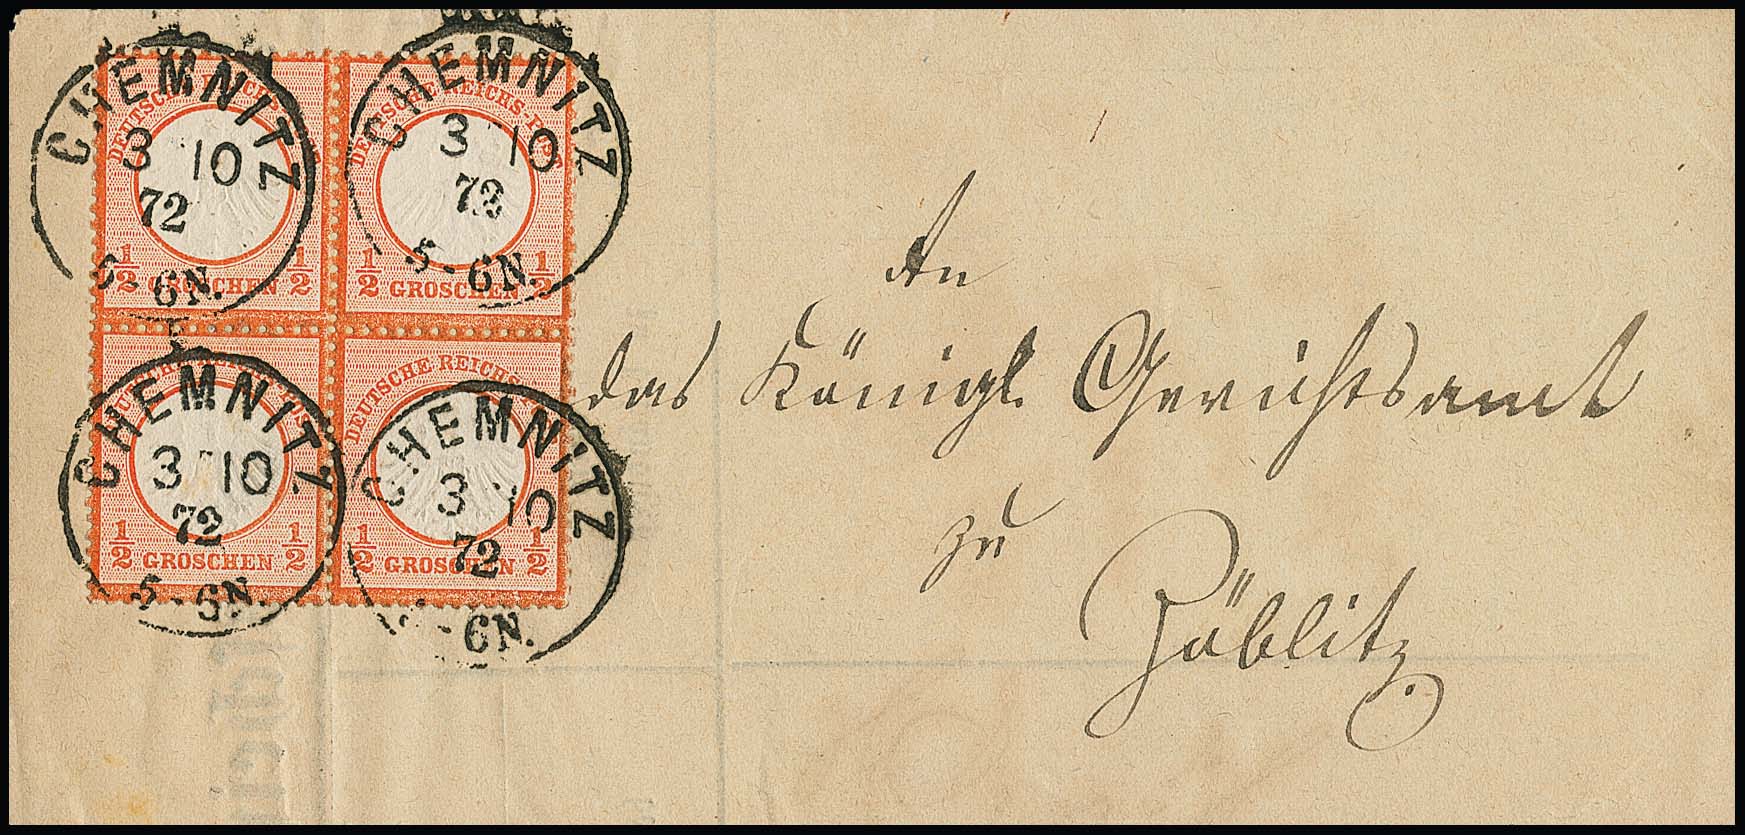 CHEMNITZ
3 10
72
5-6N.
DEUTSCHE REICHS-POST
1/2 GROSCHEN 1/2
CHEMNITZ
3 10
72
5-6N.
DEUTSCHE REICHS-POST
1/2 GROSCHEN 1/2
CHEMNITZ
3 10
72
5-6N.
DEUTSCHE REICHS-POST
1/2 GROSCHEN 1/2
CHEMNITZ
3 10
72
6N.
DEUTSCHE REICHS
1/2 GROSCHEN 1/2
An
das Königl. Gerichtsamt
zu
Zöblitz.